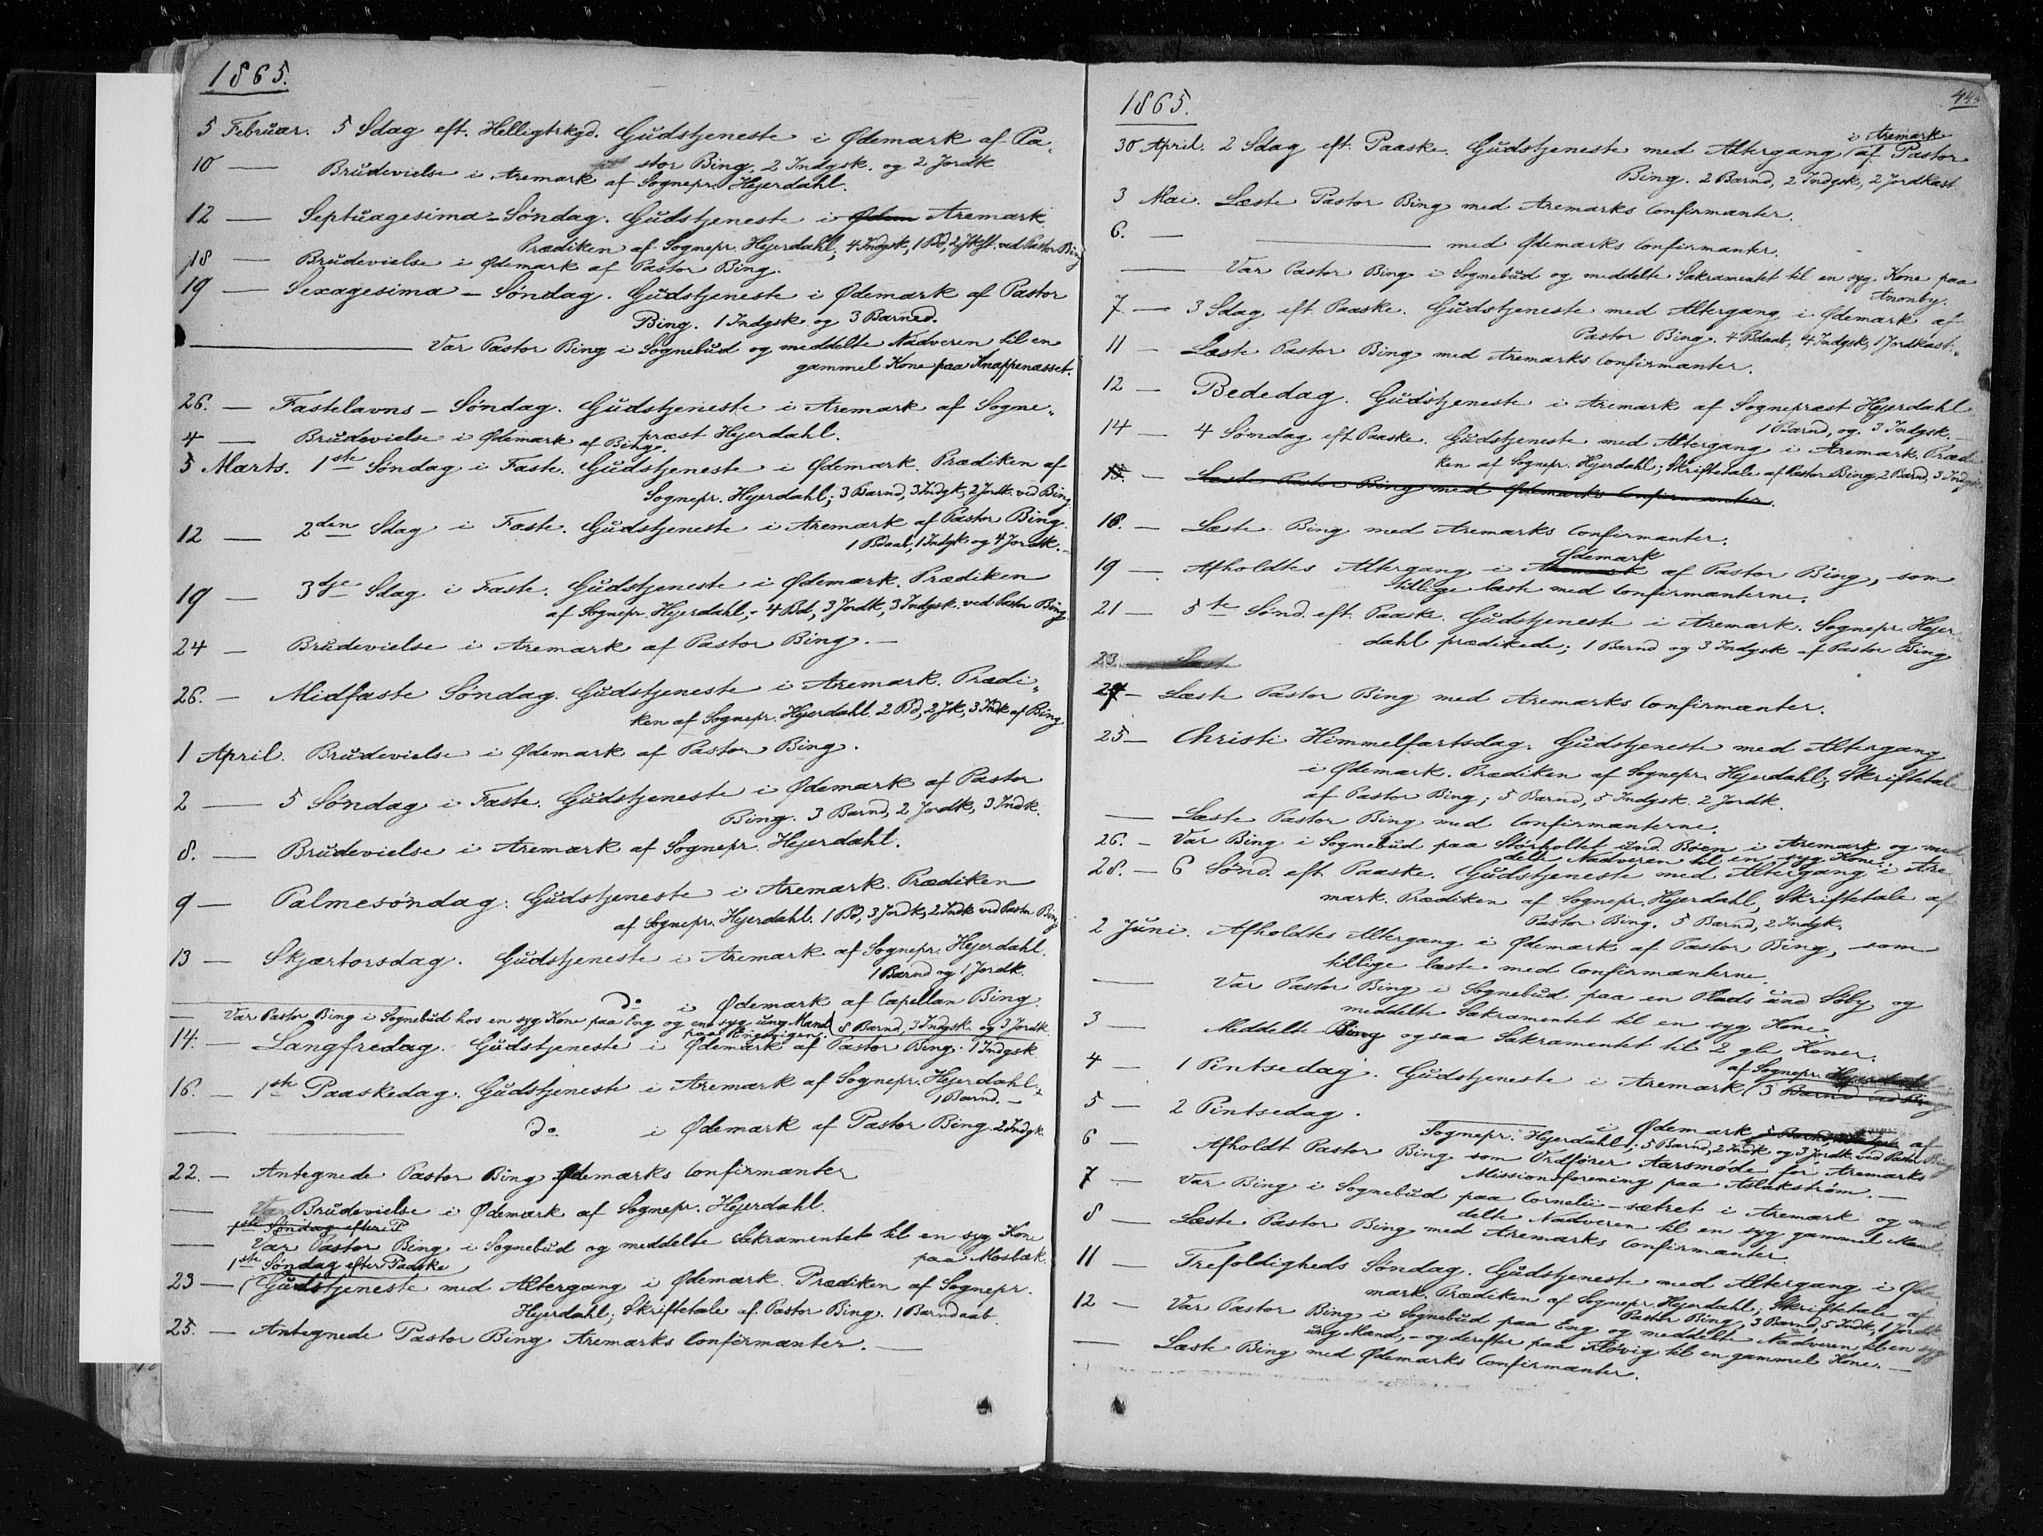 1865.
5 Februar. 5 Sdag eft. Helligtrkgd. Gudstjeneste i Ødemark af Pa-
stor Bing. 2 Indgsk. og 2 Jordk
10 — Brudevielse i Aremark af Sognepr. Hjerdahl.
12 — Septuagesima-Søndag. Gudstjeneste i Ødem Aremark
Prædiken af Sognepr. Hjerdahl; 4 Indgsk, 1 Bd, 2 Jkst. ved Pastor Bing
18 — Brudevielse i Ødemark af Pastor Bing.
19 — Sexagesima-Søndag. Gudstjeneste i Ødemark af Pastor
Bing. 1 Indgsk og 3 Barned.
— Var Pastor Bing i Sognebud og meddelte Nadveren til en
gammel Kone paa Knappenæsset.
26. — Fastelavns-Søndag. Gudstjeneste i Aremark af Sogne-
præst Hjerdahl.
4 — Brudevielse i Ødemark af Bing.
5 Marts. 1ste Søndag i Faste. Gudstjeneste i Ødemark. Prædiken af
Sognepr. Hjerdahl; 3 Barnd, 3 Indgk, 2 Jordk. ved Bing
12 — 2den Sdag i Faste. Gudstjeneste i Aremark af Pastor Bing.
1 Bdaab, 1 Indgk og 4 Jordk. —
19 — 3dje Sdag i Faste. Gudstjeneste i Ødemark. Prædiken
af Sognepr. Hjerdahl; - 4 Bd, 3 Jordk, 3 Indgsk. ved Pastor Bing
24 — Brudevielse i Aremark af Pastor Bing. —
26. — Midfaste Søndag. Gudstjeneste i Aremark. Prædi-
ken af Sognepr. Hjerdahl. 2 Bd, 2 Jk, 3 Indk af Bing
1 April. Brudevielse i Ødemark af Pastor Bing.
2 — 5 Søndag i Faste. Gudstjeneste i Ødemark af Pastor
Bing. 3 Barnd, 2 Jordk, 3 Indk.
8. — Brudevielse i Aremark af Sognepr. Hjerdahl.
9 — Palmesøndag. Gudstjeneste i Aremark. Prædiken
af Sognepr. Hjerdahl. 1 Bd, 3 Jordk, 2 Indk ved Pastor Bing
13 — Skjærtorsdag. Gudstjeneste i Aremark af Sognepr. Hejerdahl.
1 Barnd og 1 Jordk.
— do i Ødemark af Capellan Bing.
Var Pastor Bing i Sognebud hos en syg Kone paa Eng og en syg ung Mand 8 Barnd, 3 Indgsk. og 3 Jordk.
14. — Langfredag. Gudstjeneste i Ødemark af Pastor Bing. 1 Indgsk.
16. — 1ste Paaskedag. Gudstjeneste i Aremark af Sognepr. Hejerdahl.
1 Barnd. —
— do i Ødemark af Pastor Bing. 2 Indgk.
22. — Antegnede Pastor Bing Ødemarks Confirmanter
— Var Brudevielse i Ødemark af Sognepr. Hejerdahl.
1ste Søndag efter P
— Var Pastor Bing i Sognebud og meddelte Sakramentet til en syg Kone
paa Mosbæk.
1ste Søndag efter Paaske
23 — Gudstjeneste med Altergang i Ødemark. Prædiken af Sognepr.
Hejerdahl; Skriftetale af Pastor Bing. 1 Barndaab.
25. — Antegnede Pastor Bing Aremarks Confirmanter. —
1865.
30 April. 2 Sdag eft. Paaske. Gudstjeneste med Altergang i Aremark af Pastor
Bing. 2 Barnd, 2 Indgsk, 2 Jordkast
3 Mai. Læste Pastor Bing med Aremarks Confirmanter.
6. — — med Ødemarks Confirmanter.
— Var Pastor Bing i Sognebud og meddelte Sakramentet til en syg Kone paa
Anonby.
7 — 3 Sdag eft. Paaske. Gudstjeneste med Altergang i Ødemark af
Pastor Bing. 4 Bdaab, 4 Indgsk, 1 Jordkast.
11 — Læste Pastor Bing med Aremarks Confirmanter.
12 — Bededag. Gudstjeneste i Aremark af Sognepræst Hejerdahl
1 Barnd, og 3 Indgsk. —
14 — 4 Søndag eft Paaske. Gudstjeneste med Altergang i Aremark. Prædi
ken af Sognepr. Hjerdahl; Skriftetale af Pastor Bing. 2 Barnd, 3 Indgsk
15. — Læste Pastor Bing med Ødemarks Confirmanter.
18. — Læste Bing med Aremarks Confirmanter.
19 — Afholdtes Altergang i Aremark Ødemark af Pastor Bing, som
tillige læste med Confirmanterne.
21 — 5te Sønd. eft. Paask. Gudstjeneste i Aremark. Sognepr. Hejer
dahl prædikede; 1 Barnd og 3 Indgsk af Pastor Bing
23 Læste
24 — Læste Pastor Bing med Aremarks Confirmanter.
25 — Christi Himmelfartsdag. Gudstjeneste med Altergang
i Ødemark. Prædiken af Sognepr. Hejerdahl; Skriftetale
af Pastor Bing; 5 Barnd, 5 Indgsk. 2 Jordk.
— Læste Pastor Bing med Confirmanterne.
26. — Var Bing i Sognebud paa Storholtet und. Bøen i Aremark og med-
delte Nadveren til en syg Kone.
28. — 6 Sønd. eft Paaske. Gudstjeneste med Altergang i Are
mark. Prædiken af Sognepr. Hejerdahl, Skriftetale af
Pastor Bing. 5 Barnd, 2 Indgk.
2 Juni. Afholdtes Altergang i Ødemark af Pastor Bing, som
tillige læste med Confirmanterne.
— Var Pastor Bing i Sognebud paa en Plads und Søby og
meddelte Sakramentet til en syg Kone.
3 — Meddelte Bing ogsaa Sakramentet til 2 gle Koner.
4 — 1 Pintsedag. Gudstjeneste i Aremark af Sognepr. Hejerdahl (3 Barnd ved Bing
5 — 2 Pintsedag. i Ødemark af
Sognepr. Hejerdahl; 5 Barnd, 2 Indk og 3 Jordk. ved Pastor Bing
6 — Afholdt Pastor Bing som Ordfører Aarsmøde for Aremarks
Missionsforening paa Aslakstrøm. —
7 — Var Bing i Sognebud paa Cornelii-sætret i Aremark og med
delte Nadveren til en syg gammel Mand.
8 — Læste Pastor Bing med Aremarks Confirmanter.
11 — Trefoldigheds Søndag. Gudstjeneste med Altergang i Øde
mark. Prædiken af Sognepr. Hejerdahl; Skriftetale af
Pastor Bing, 3 Barnd, 5 Indk, 1 Jordk
12 — Var Pastor Bing i Sognebud paa Eng og meddelte Nadveren til en syg
ung Mand, - og derefter paa Kløvig til en gammel Kone. —
— Læste Bing med Ødemarks Confirmanter.